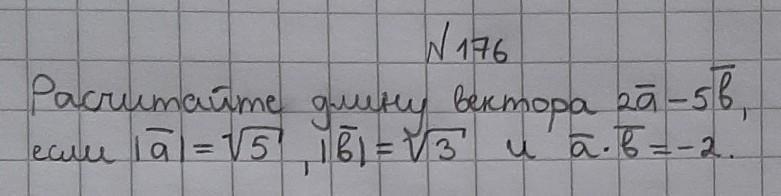 N 176
Расчитайте длину вектора 2a̅ - 5b̅,
если |a̅| = √5, |b̅| = √3 и a̅ · b̅ = -2.